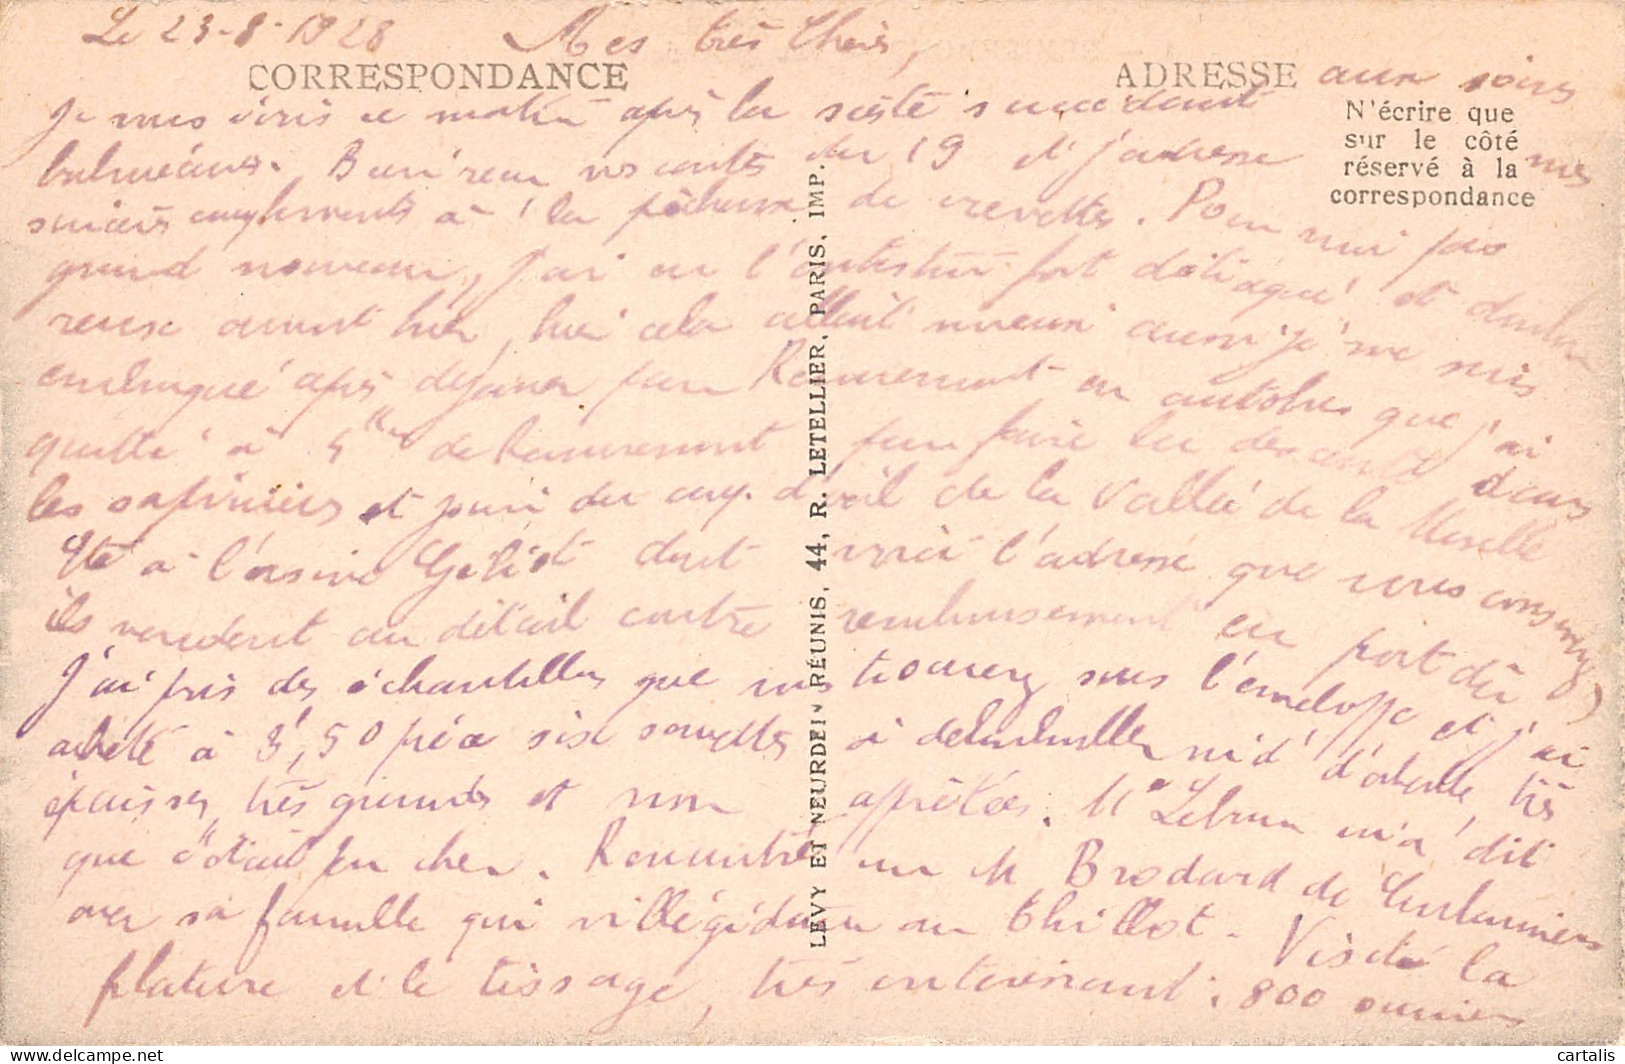 Le 23-8-1928 Mes très Chers,
CORRESPONDANCE
ADRESSE
N'écrire que
sur le côté
réservé à la
correspondance
Je vous écris ce matin après la sieste succédant aux soins
balnéaires. Bien reçu vos cartes du 19 et j'adresse mes
sincères compliments à la pêcheuse de crevettes. Pour moi pas
grand nouveau, j'ai eu l'intestin fort détraqué et
avant hier, hier cela allait mieux aussi je me suis
embarqué après déjeuner pour Remiremont en autobus que j'ai
quitté à de Remiremont pour faire la descente dans
les sapinières et jouir du coup d'œil de la Vallée de la Moselle
à l'usine Géliot dont voici l'adresse que vous
ils vendent au détail contre remboursement en port dû
J'ai pris des échantillons que vous trouverez sous l'enveloppe et j'ai
acheté à 3f,50 pièce six serviettes à nid d'abeille, très
épaisses, très grandes et non apprêtées. Me Lebrun m'a dit
que c'était pas cher. Rencontré un M Brodard de
avec sa famille qui villégiature au Thillot. Visité la
filature et le tissage, très intéressant. 800 ouvriers
LEVY ET NEURDEIN RÉUNIS, 44, R. LETELLIER, PARIS, IMP.
delcampe.net
cartalis